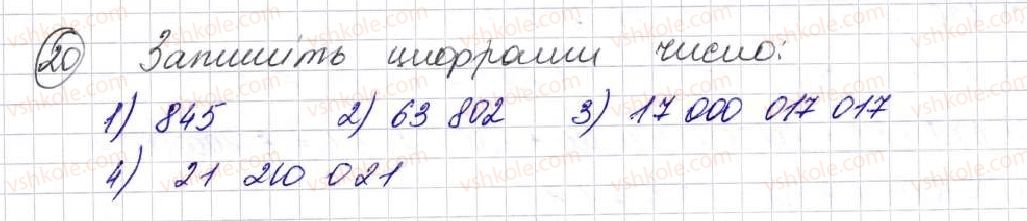 20 Запишіть цифрами число:
1) 845 2) 63 802 3) 17 000 017 017
4) 21 210 021